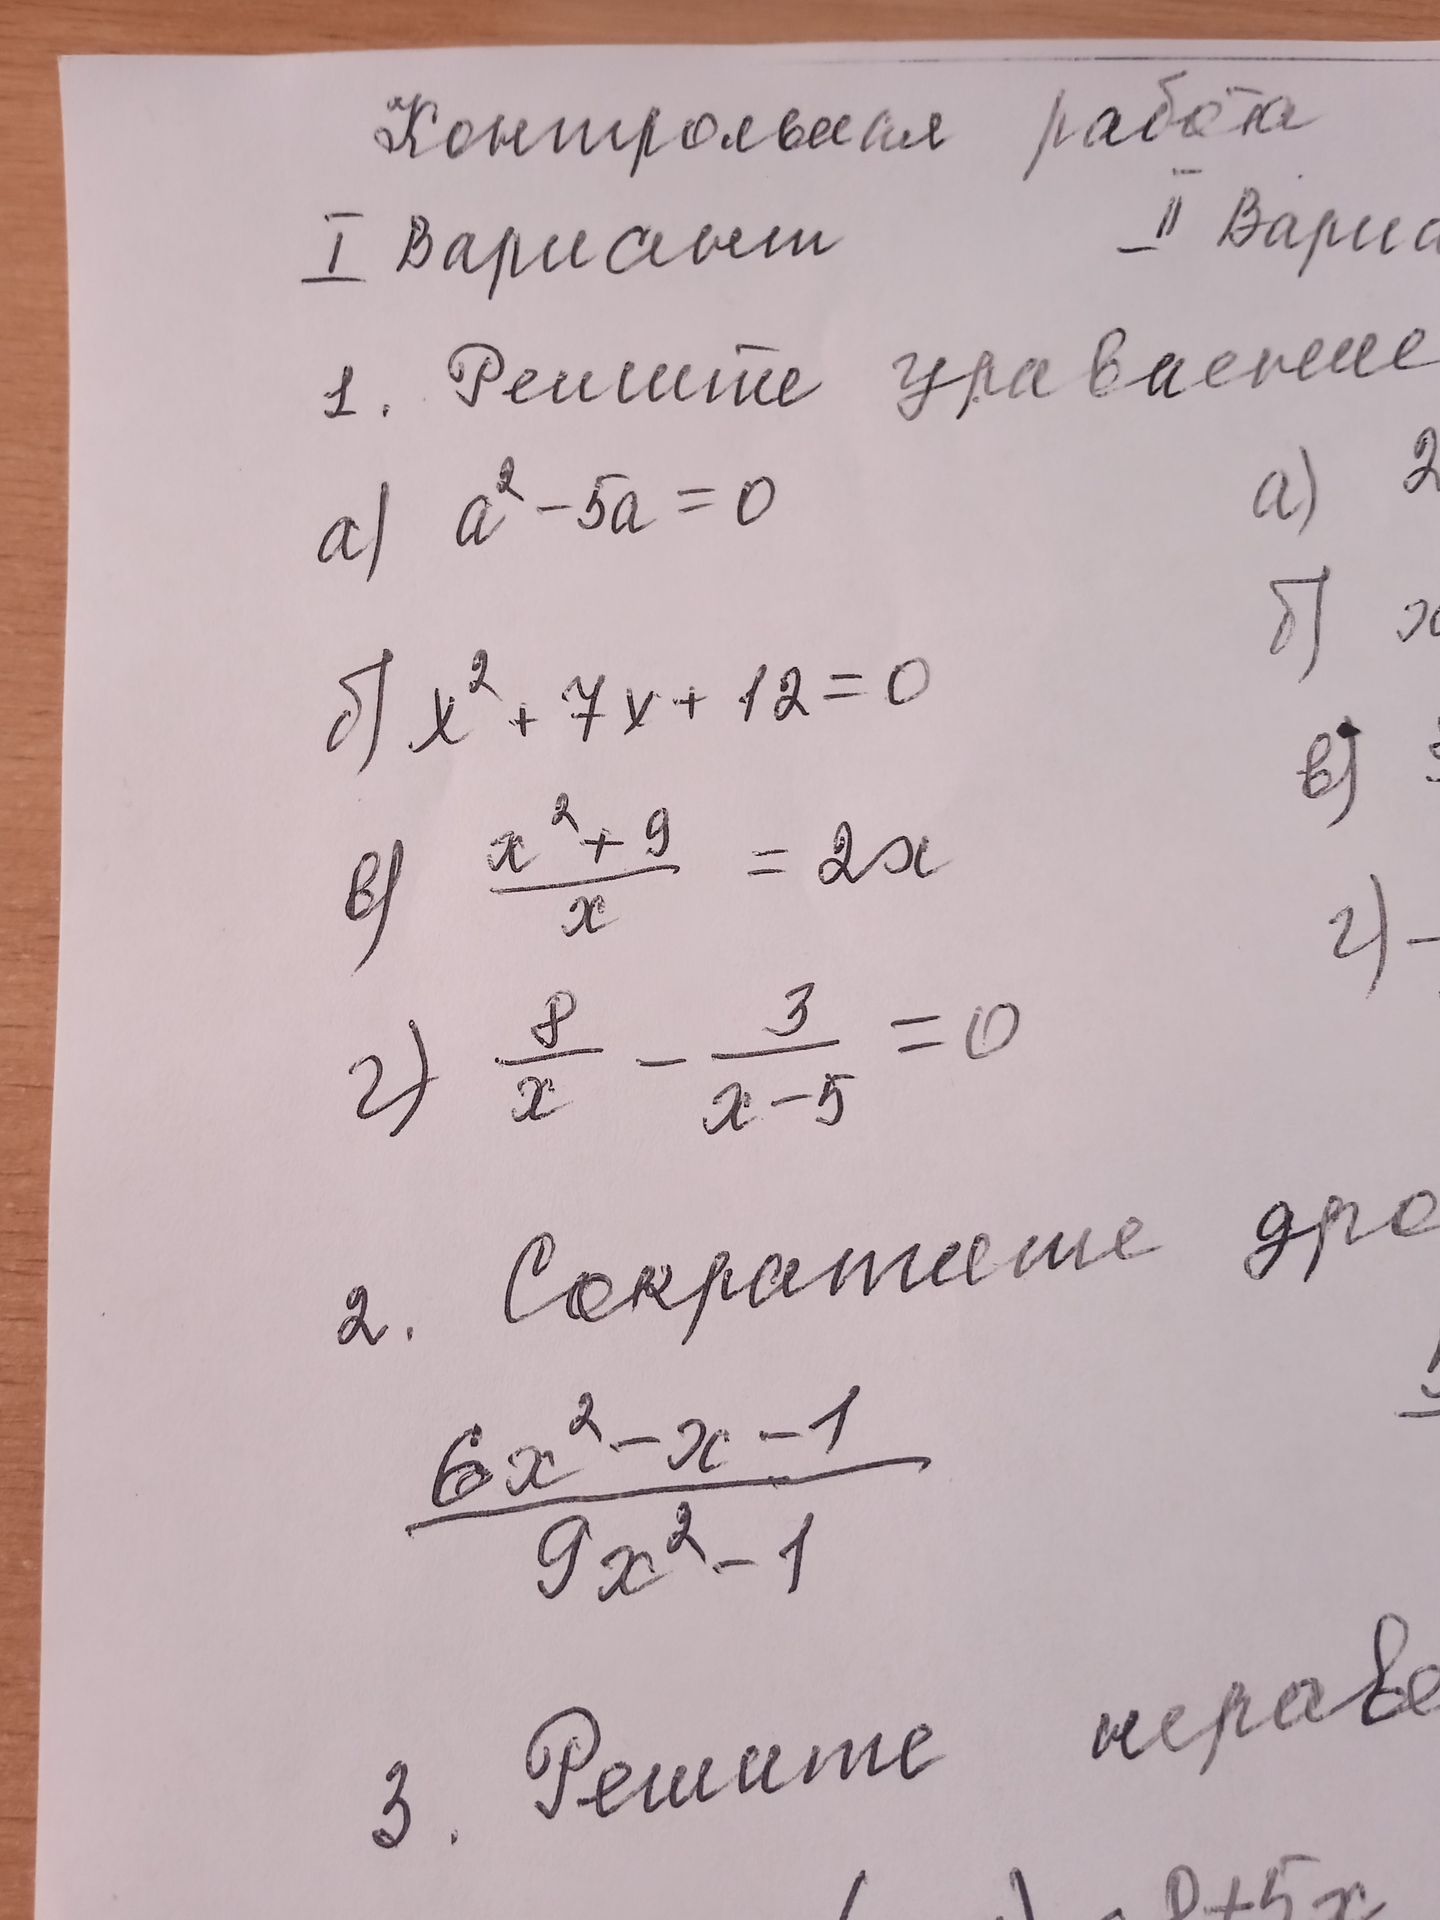 Контрольная работа
I Вариант II Вариа
1. Решите уравнение
а) a² - 5a = 0 а) 2
б) x² + 7x + 12 = 0 б) x
в) (x² + 9)/x = 2x в)
г) 8/x - 3/(x - 5) = 0 г) -
2. Сократите дро
(6x² - x - 1)/(9x² - 1)
3. Решите нераве
8 + 5x